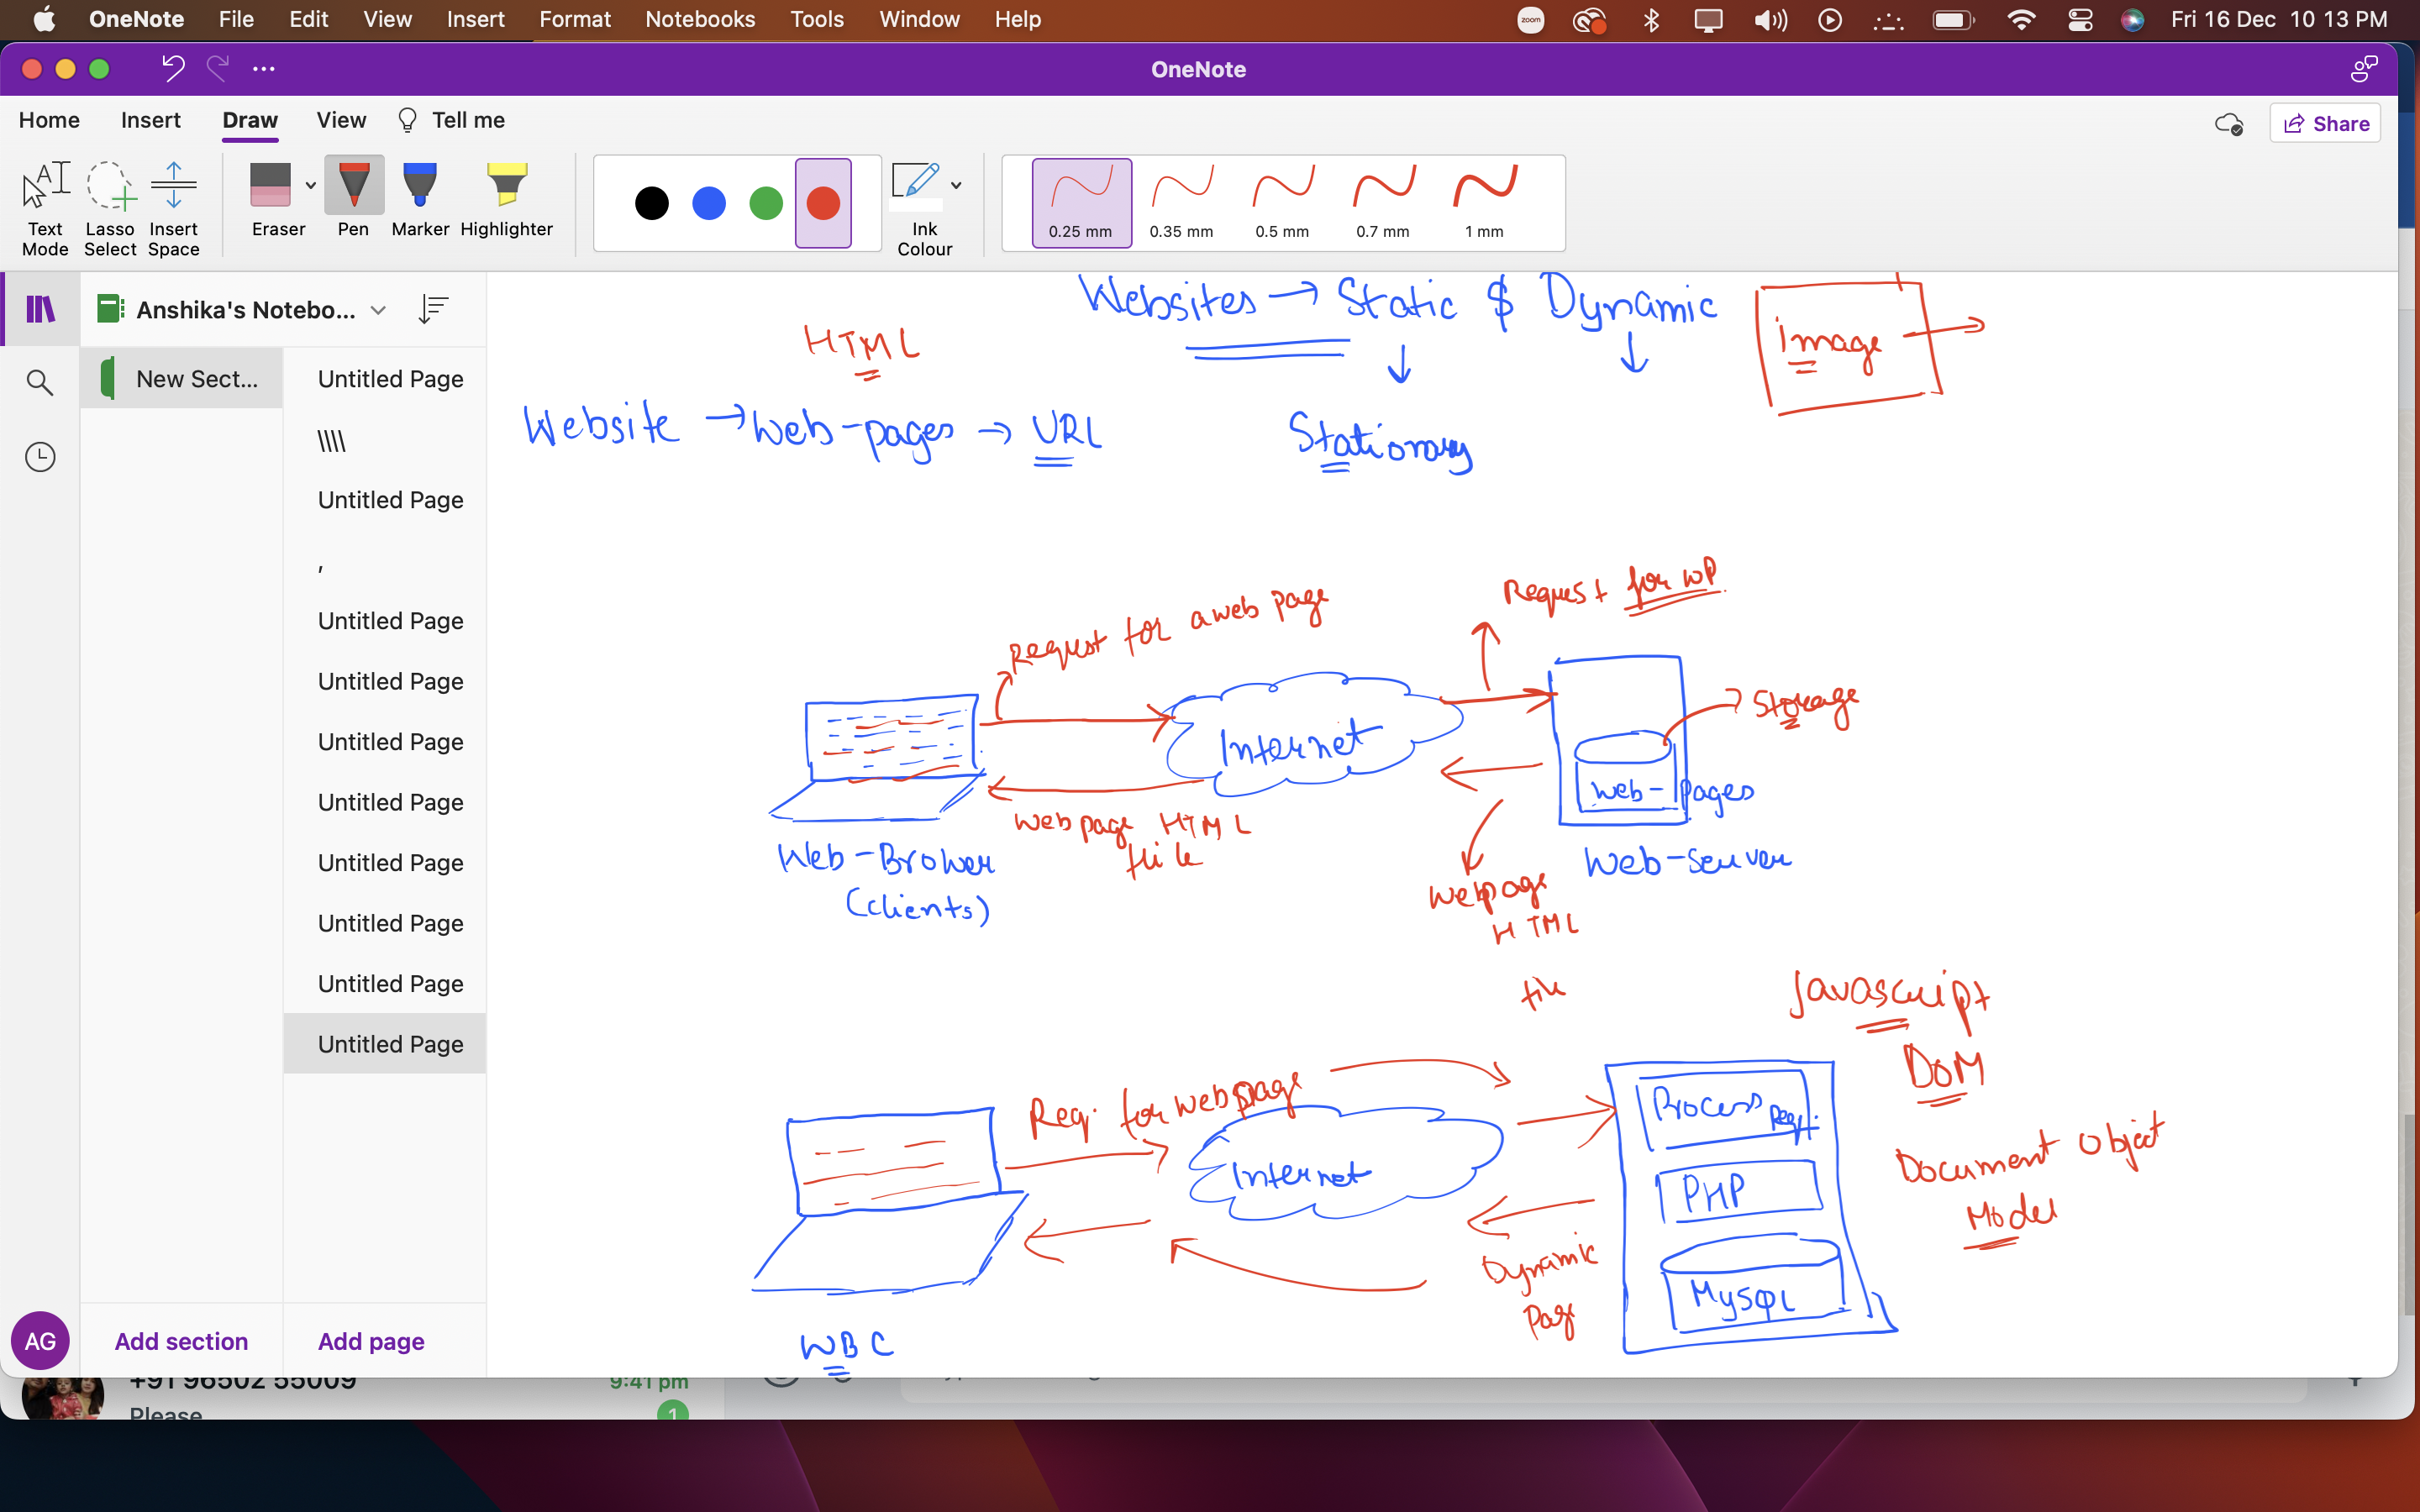 OneNote File Edit View Insert Format Notebooks Tools Window Help
zoom
Fri 16 Dec 10 13 PM
OneNote
Home Insert Draw View Tell me
Share
Text Mode
Lasso Select
Insert Space
Eraser
Pen
Marker
Highlighter
Ink Colour
0.25 mm
0.35 mm
0.5 mm
0.7 mm
1 mm
Anshika's Notebo...
New Sect...
Untitled Page
\\\\
Untitled Page
,
Untitled Page
Untitled Page
Untitled Page
Untitled Page
Untitled Page
Untitled Page
Untitled Page
Untitled Page
Add section
Add page
AG
Websites → Static $ Dynamic
image
HTML
Website → Web-pages → URL
Stationary
Request for a web page
Request for WP
Internet
Storage
Web-Pages
Webpage HTML
file
Web-Brower
(clients)
Web-Server
Webpage
HTML
file
Javascript
DOM
Document Object
Model
Req. for webpage
Internet
Process Req.
PHP
MySQL
Dynamic
Page
WBC
+91 96502 55009
9:41 pm
Please
1